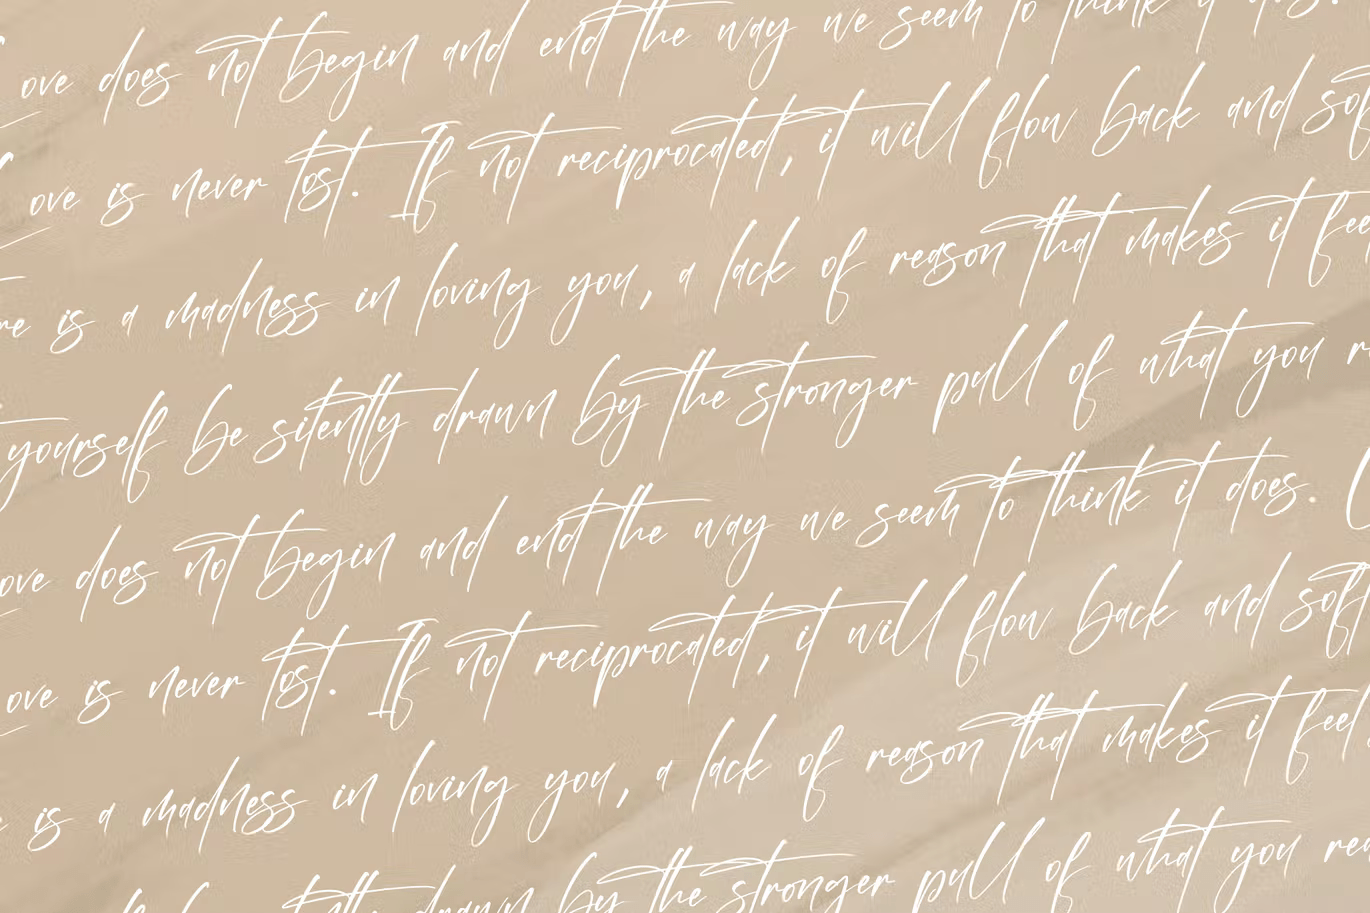 ove does not begin and end the way we seem to think it does.
ove is never lost. If not reciprocated, it will flow back and sof
re is a madness in loving you, a lack of reason that makes it fee
yourself be silently drawn by the stronger pull of what you r
ove does not begin and end the way we seem to think it does.
ove is never lost. If not reciprocated, it will flow back and soft
is a madness in loving you, a lack of reason that makes it feel
drawn by the stronger pull of what you rea